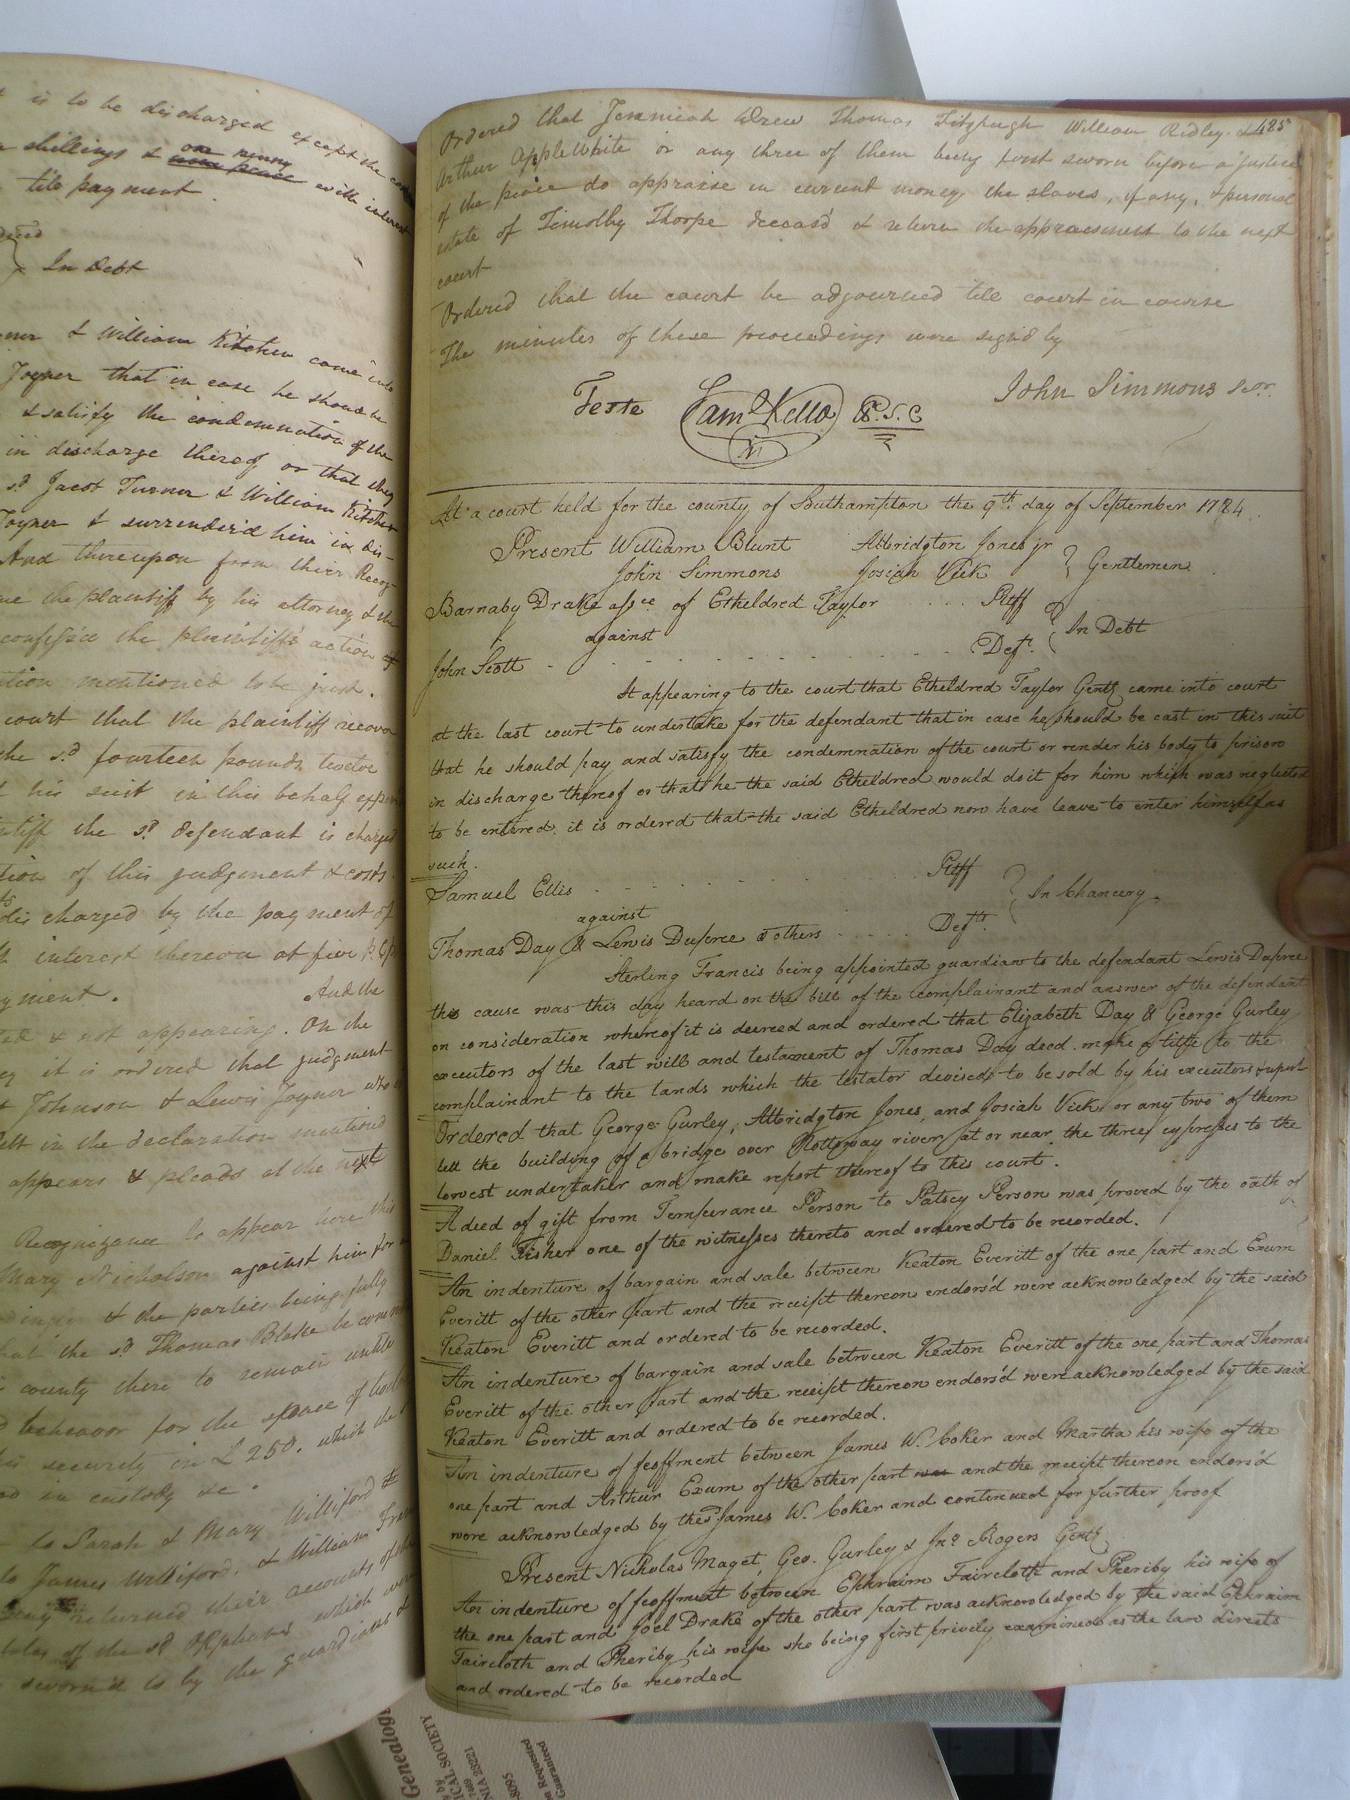 is to be discharged except the
shillings & one penny with interest
till payment.
In Debt
& William Kitchen came into
Joyner that in case he should be
& satisfy the condemnation of the
in discharge thereof or that they
sd. Jacob Turner & William Kitchen
Joyner & surrender'd him in dis-
And thereupon from their Recog-
the plaintiff by his attorney & the
confess'd the plaintiff's action
mentioned to be just.
court that the plaintiff recover
the sd. fourteen pounds twelve
his suit in this behalf
the sd. defendant is
of this judgment & costs
discharged by the payment of
interest thereon at five p. Ct
And the
& not appearing. On the
it is ordered that judgment
Johnson & Lewis Joyner who
debt in the declaration mentioned
appears & pleads at the next
Recognizance to appear here this
Mary Nicholson against him for
& the parties being fully
that the sd. Thomas Blake be
county there to remain until
behavior for the space of
security in £250. which the
in custody &c.
to Sarah & Mary Williford &
to James Williford, & William
returned their accounts of
of the sd. Orphans which were
sworn'd to by the guardians &
485
Ordered that Jeremiah Drew Thomas Fitzhugh William Ridley &
Arthur Applewhite or any three of them being first sworn before a justice
of the peace do appraise in current money the slaves, if any, & personal
estate of Timothy Thorpe deceas'd & return the appraisment to the next
court
Ordered that the court be adjourned till court in course
The minutes of these proceedings were sign'd by
John Simmons Senr.
Teste Saml. Kello C.S.C
At a court held for the county of Southampton the 9th. day of September 1784.
Present William Blunt Albridgton Jones jr
John Simmons Josiah Vick } Gentlemen
Barnaby Drake assee of Etheldred Taylor . . . Pltff
against } In Debt
John Scott - - - - Deft.
It appearing to the court that Etheldred Taylor Gentl came into court
at the last court to undertake for the defendant that in case he should be cast in this suit
that he should pay and satisfy the condemnation of the court or render his body to prison
in discharge thereof or that he the said Etheldred would do it for him which was neglected
to be entered, it is ordered that the said Etheldred now have leave to enter himself as
such.
Samuel Ellis - - - - Pltff
against } In Chancery.
Thomas Day & Lewis Dupree & others . . . . . Defts.
Sterling Francis being appointed guardian to the defendant Lewis Dupree
this cause was this day heard on the bill of the complainant and answer of the defendant
on consideration whereof it is decreed and ordered that Elizabeth Day & George Gurley
executors of the last will and testament of Thomas Day decd. make a title to the
complainant to the lands which the testator devised to be sold by his executors
Ordered that George Gurley, Albridgton Jones, and Josiah Vick or any two of them
let the building of a bridge over Nottoway river at or near the three cypresses to the
lowest undertaker and make report thereof to this court.
A deed of gift from Temperance Person to Patsey Person was proved by the oath of
Daniel Fisher one of the witnesses thereto and ordered to be recorded.
An indenture of bargain and sale between Keaton Everitt of the one part and Exum
Everitt of the other part and the receipt thereon endors'd were acknowledged by the said
Keaton Everitt and ordered to be recorded.
An indenture of bargain and sale between Keaton Everitt of the one part and Thomas
Everitt of the other part and the receipt thereon endors'd were acknowledged by the said
Keaton Everitt and ordered to be recorded.
An indenture of feoffment between James W. Coker and Martha his wife of the
one part and Arthur Exum of the other part was and the receipt thereon endors'd
were acknowledged by the sd James W. Coker and continued for further proof
Present Nicholas Maget, Geo. Gurley & Jno. Rogers Gentl
An indenture of feoffment between Ephraim Faircloth and Pheriby his wife of
the one part and Joel Drake of the other part was acknowledged by the said Ephraim
Faircloth and Pheriby his wife she being first privily examined as the law directs
and ordered to be recorded
Genealog
by
CAL SOCIETY
NIA 23221
-8095
on Requested
Guaranteed